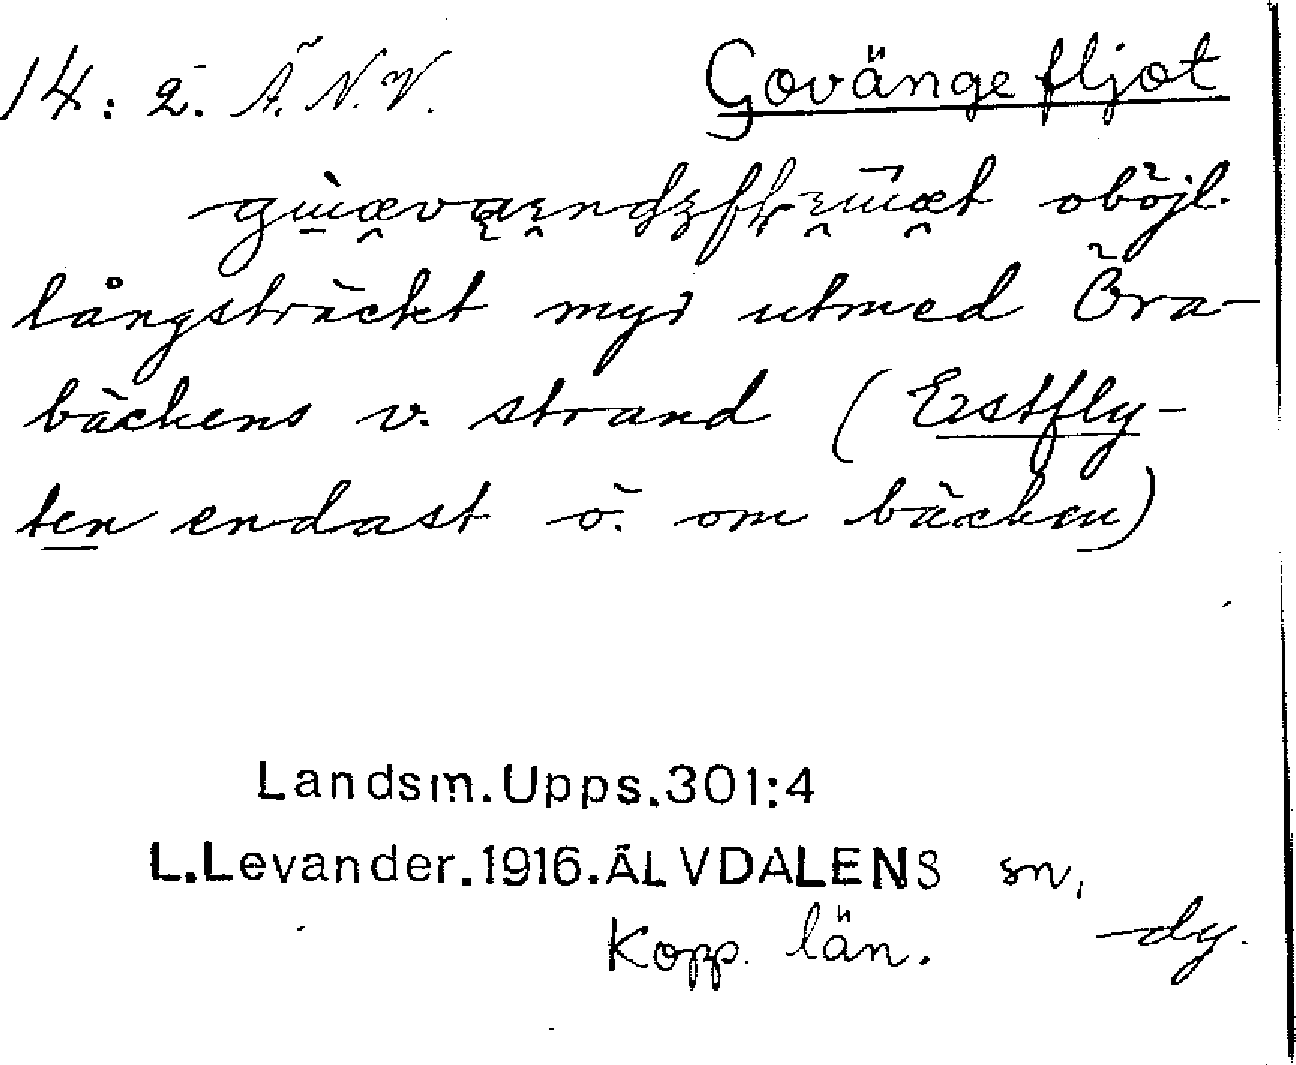 14: 2. Ä. N. V. Govängefljot
oböjl.
långsträckt myr utmed Öra-
bäckens v. strand (Estfly-
ten endast ö. om bäcken)
Landsm.Upps.301:4
L.Levander.1916.ÄLVDALENS sn,
Kopp. län. dy.